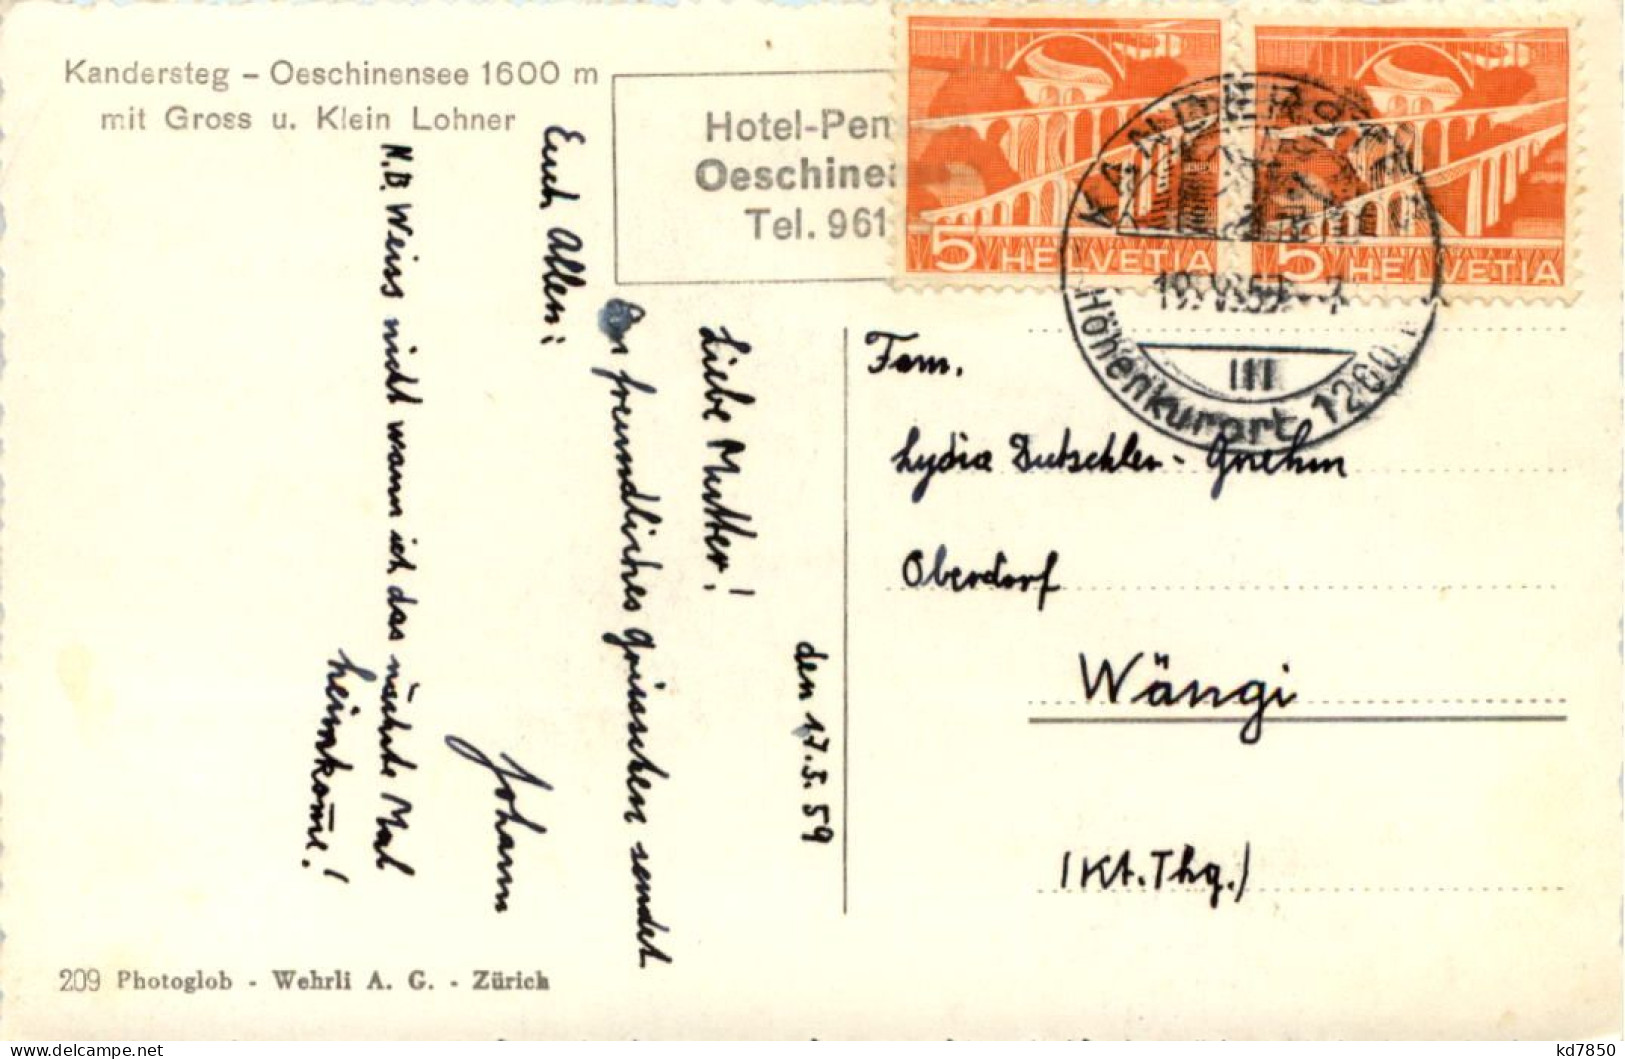 Kandersteg – Oeschinensee 1600 m
mit Gross u. Klein Lohner
Hotel-Pen
Oeschine
Tel. 961
5 HELVETIA
5 HELVETIA
KANDERSTEG
Höhenkurort 1200
III
den 17.5.59
Liebe Mutter!
freundliches Grüsschen sendet
Euch Allen:
Johann
N.B. Weiss nicht wann ich das nächste Mal
heimkom̄e!
Fam.
Lydia Dutschler - Gnehm
Oberdorf
Wängi
(Kt. Thg.)
209 Photoglob - Wehrli A. G. - Zürich
kd7850